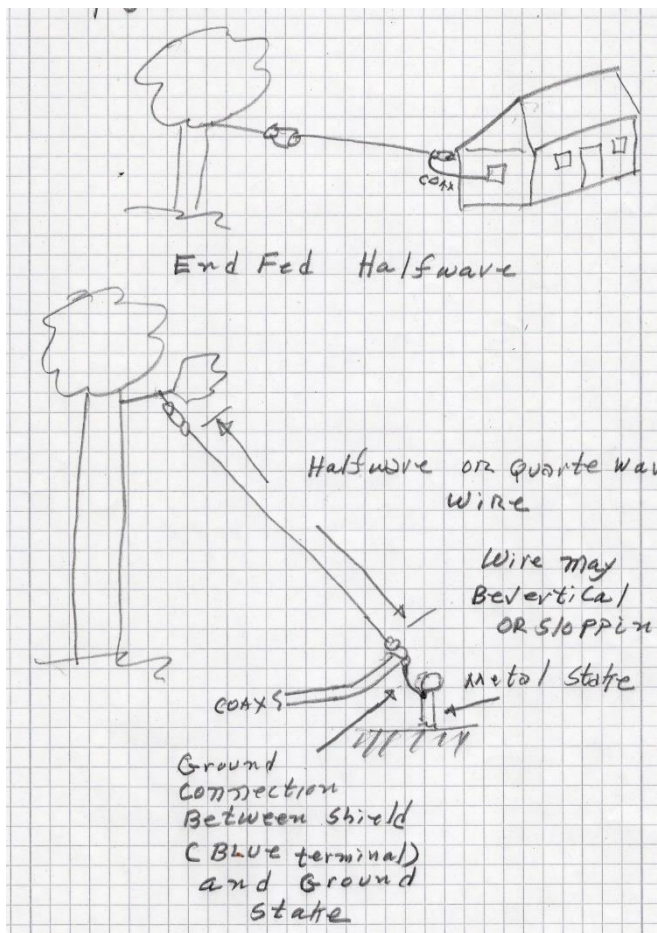 COAX
End Fed Halfwave
Halfwave or Quarte wav
wire
Wire may
Be vertical
OR Sloppin
Metal Stake
COAX
Ground
Connection
Between Shield
(BLUE terminal)
and Ground
Stake